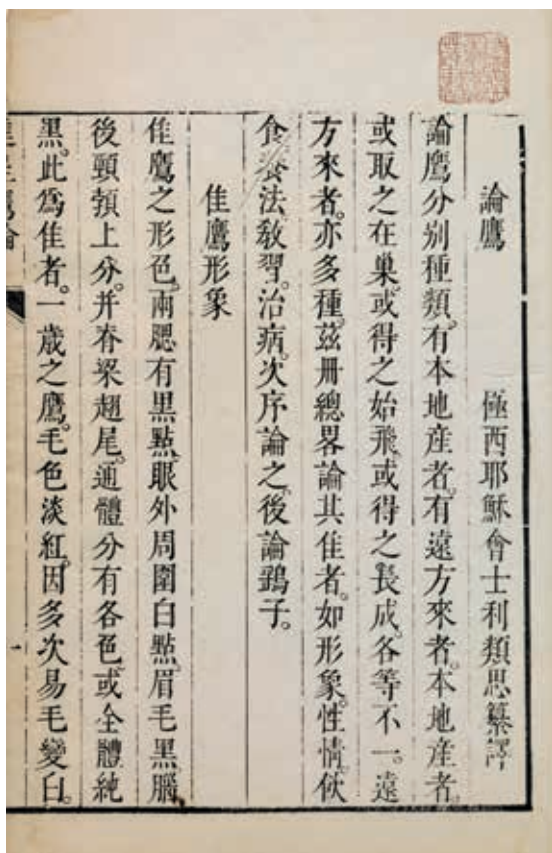 論鷹
極西耶穌會士利類思纂譯
論鷹分別種類。有本地產者。有遠方來者。本地產者。
或取之在巢。或得之始飛。或得之長成。各等不一。遠
方來者。亦多種。茲册總畧論其佳者。如形象。性情。飲
食。養法。教習。治病。次序論之。後論鷂子。
佳鷹形象
佳鷹之形色。兩腮有黑點。眼外周圍白點。眉毛黑。腦
後頸頷上分。并脊梁趐尾。通體分有各色。或全體純
黑。此爲佳者。一歲之鷹。毛色淡紅。因多次易毛變白。
一